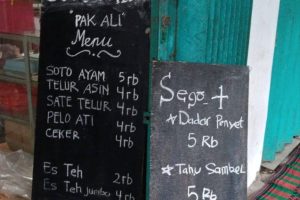 "PAK ALI"
Menu
SOTO AYAM 5rb
TELUR ASIN 4rb
SATE TELUR 4rb
PELO ATI 4rb
CEKER 4rb
Es Teh 2rb
Es Teh jumbo 4rb
Sego +
Dadar Penyet
5 Rb
Tahu Sambel
5 Rb